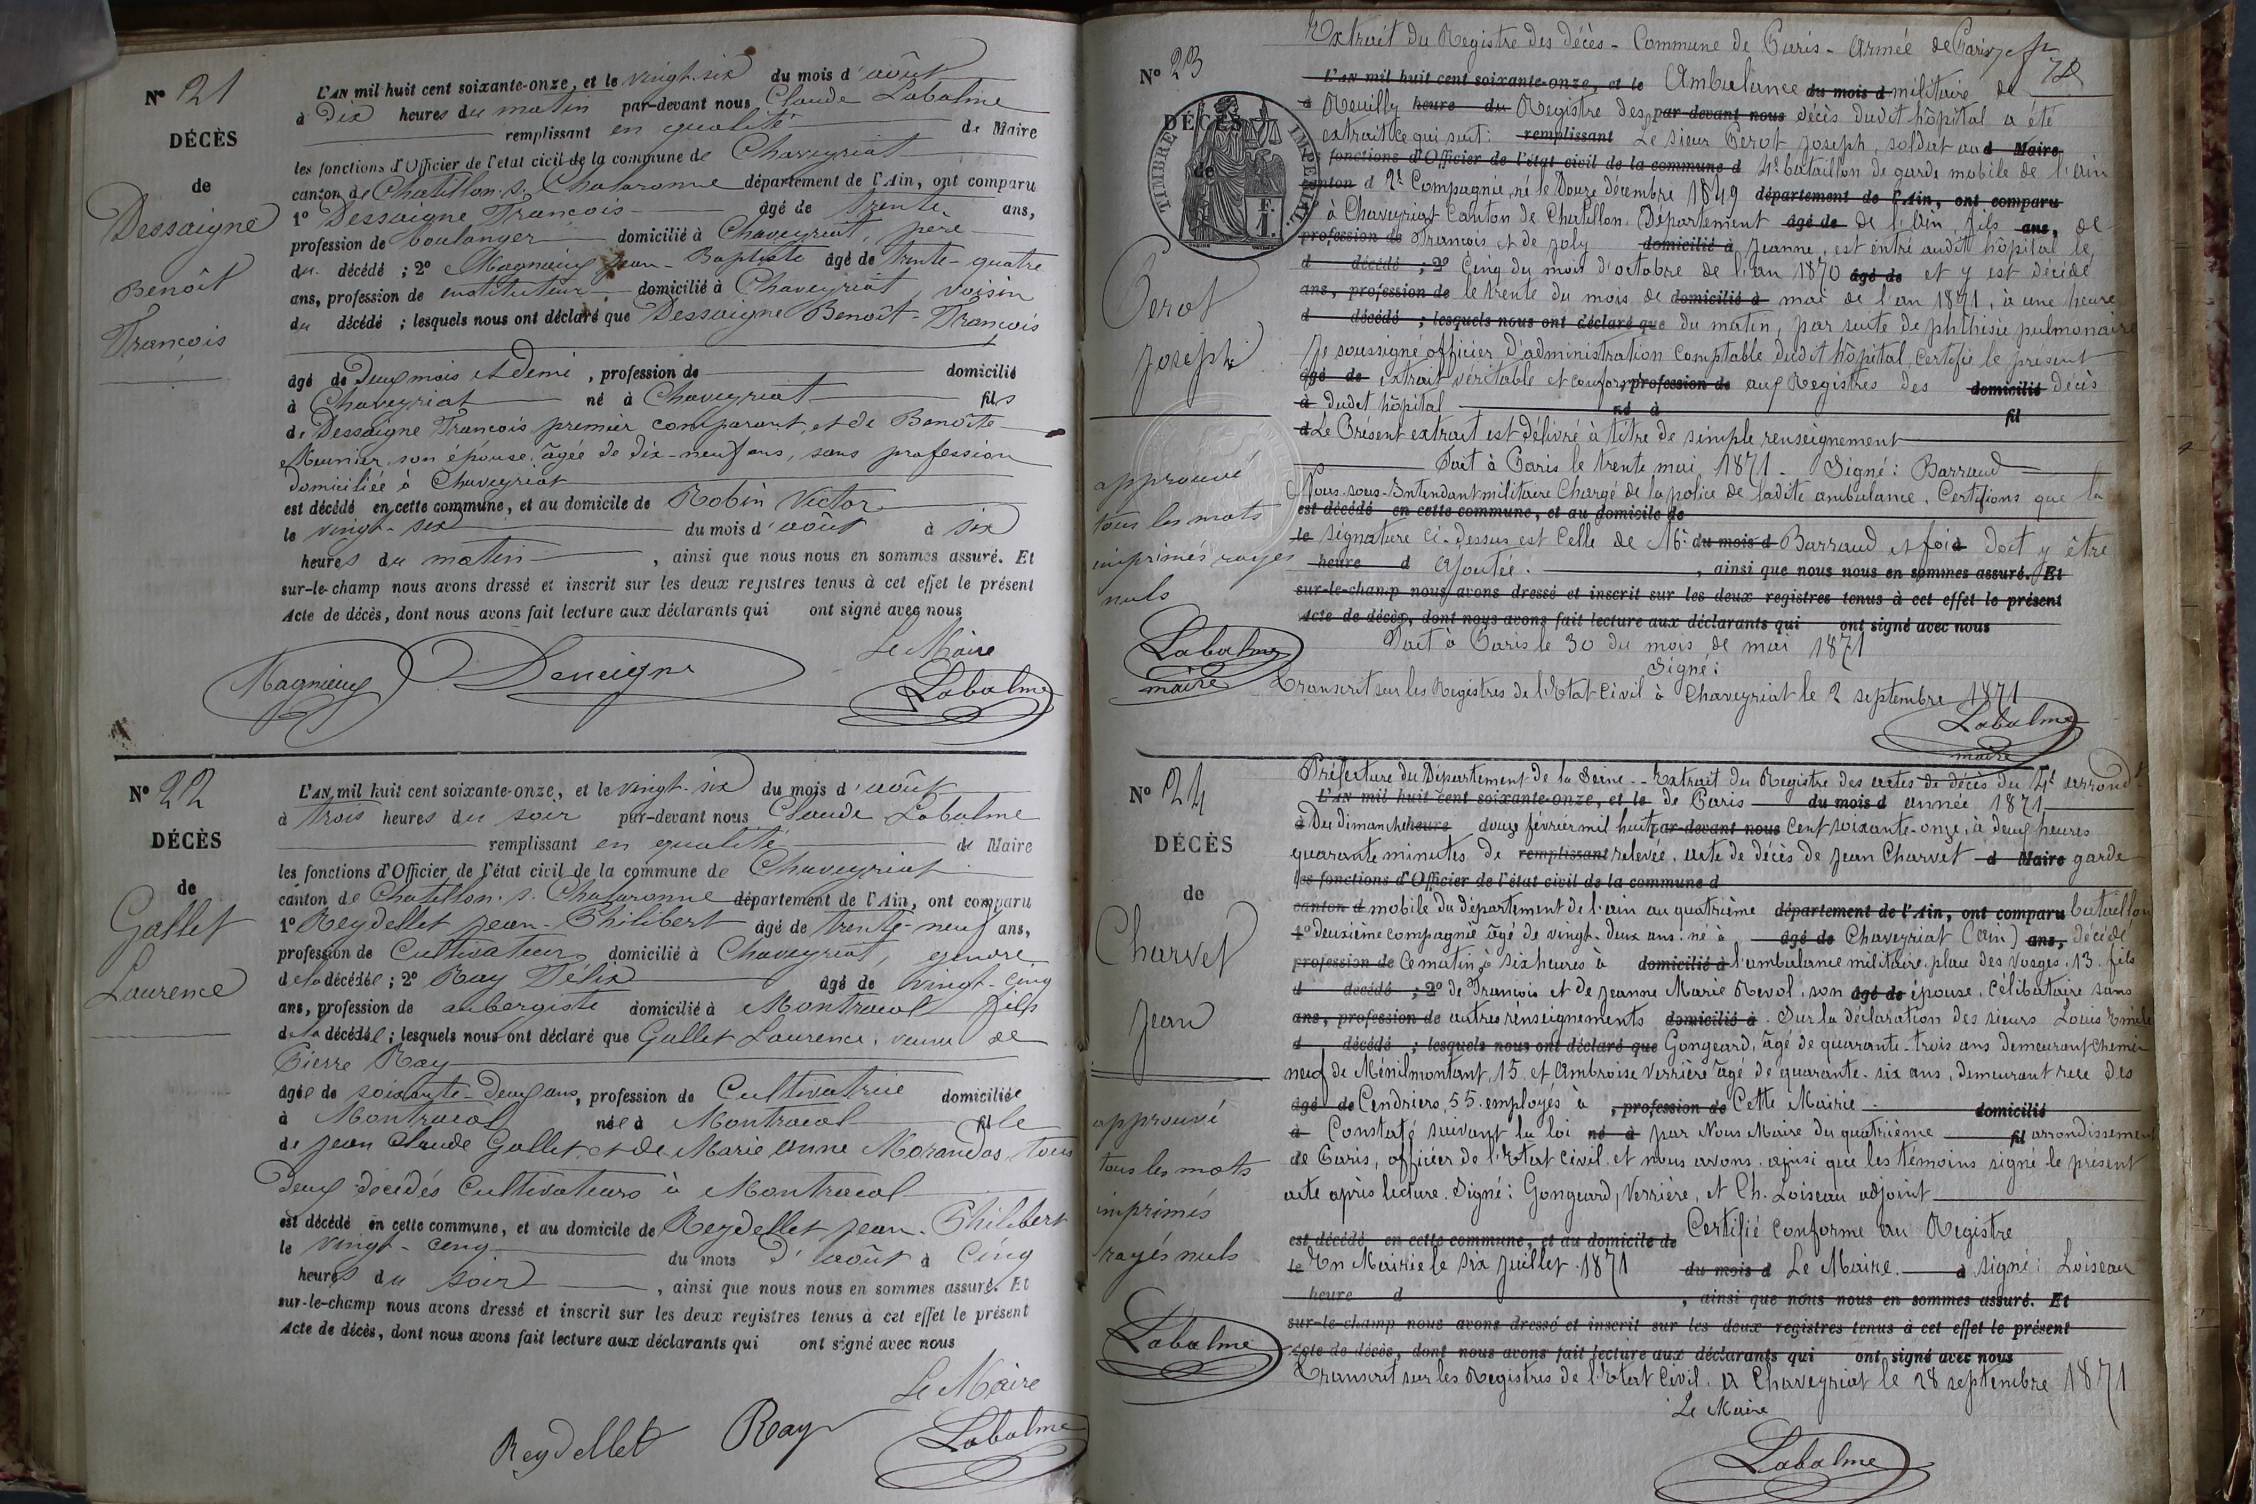 N° 21
DÉCÈS
de
Dessaigne
Benoît
François
L'AN mil huit cent soixante-onze, et le vingt-six du mois d'août
à Dix heures du matin par-devant nous Claude Labalme
remplissant en qualité de Maire
les fonctions d'Officier de l'état civil de la commune de Chaveyriat
canton de Chatillon-s-Chalaronne département de l'Ain, ont comparu
1° Dessaigne François âgé de trente ans,
profession de boulanger domicilié à Chaveyriat, père
du décédé ; 2° Magnieux Jean-Baptiste âgé de trente-quatre
ans, profession de instituteur domicilié à Chaveyriat, voisin
du décédé ; lesquels nous ont déclaré que Dessaigne Benoît-François
âgé de Deux mois et demi, profession de domicilié
à Chaveyriat né à Chaveyriat fils
de Dessaigne François premier comparant, et de Benoîte
Meunier, son épouse âgée de dix-neuf ans, sans profession
domiciliée à Chaveyriat
est décédé en cette commune, et au domicile de Robin Victor
le vingt-six du mois d'août à six
heures du matin, ainsi que nous nous en sommes assuré. Et
sur-le-champ nous avons dressé et inscrit sur les deux registres tenus à cet effet le présent
Acte de décès, dont nous avons fait lecture aux déclarants qui ont signé avec nous
Le Maire
Magnieux Desseigne Labalme
N° 22
DÉCÈS
de
Gallet
Laurence
L'AN mil huit cent soixante-onze, et le vingt-six du mois d'août
à trois heures du soir par-devant nous Claude Labalme
remplissant en qualité de Maire
les fonctions d'Officier de l'état civil de la commune de Chaveyriat
canton de Chatillon-s-Chalaronne département de l'Ain, ont comparu
1° Reydellet Jean-Philibert âgé de trente-neuf ans,
profession de Cultivateur domicilié à Chaveyriat, gendre
de la décédée ; 2° Ray Félix âgé de vingt-cinq
ans, profession de aubergiste domicilié à Montracol fils
de la décédée ; lesquels nous ont déclaré que Gallet Laurence, veuve de
Pierre Ray
âgée de soixante-deux ans, profession de Cultivatrice domiciliée
à Montracol née à Montracol fille
de Jean Claude Gallet et de Marie Anne Morandas, tous
deux décédés Cultivateurs à Montracol
est décédé en cette commune, et au domicile de Reydellet Jean-Philibert
le vingt-cinq du mois d'août à Cinq
heures du soir, ainsi que nous nous en sommes assuré. Et
sur-le-champ nous avons dressé et inscrit sur les deux registres tenus à cet effet le présent
Acte de décès, dont nous avons fait lecture aux déclarants qui ont signé avec nous
Le Maire
Reydellet Ray Labalme
Extrait du Registre des décès - Commune de Paris - Armée de Paris
N° 23
DÉCÈS
de
TIMBRE IMPÉRIAL
Perot
Joseph
approuvé
tous les mots
imprimés rayés
nuls
Labalme
maire
L'AN mil huit cent soixante-onze, et le Ambulance du mois d militaire de
à Neuilly heure du Registre des par-devant nous décès dudit hôpital a été
extrait ce qui suit : remplissant Le sieur Perot Joseph, soldat au d Maire
les fonctions d'Officier de l'état civil de la commune d 4e bataillon de garde mobile de l'ain
canton d 2e Compagnie, né le Douze décembre 1849 département de l'Ain, ont comparu
à Chaveyriat Canton de Chatillon, Département âgé de de l'Ain, fils ans, de
profession de François et de Joly domicilié à Jeanne, est entré audit hôpital le
d décédé ; 2° Cinq du mois d'octobre de l'an 1870 âgé de et y est décédé
ans, profession de le trente du mois de domicilié à mai de l'an 1871, à une heure
d décédé ; lesquels nous ont déclaré que du matin, par suite de phthisie pulmonaire
Je soussigné officier d'administration comptable dudit hôpital certifie le présent
âgé de extrait véritable et conforme profession de aux Registres des domicilié décès
à dudit hôpital né à fil
d Le Présent extrait est délivré à titre de simple renseignement
Fait à Paris le trente mai 1871 - Signé : Barraud
Nous sous-Intendant militaire Chargé de la police de ladite ambulance, Certifions que la
est décédé en cette commune, et au domicile de
le signature ci-dessus est Celle de Mr du mois d Barraud et foi à doit y être
heure d ajoutée. , ainsi que nous nous en sommes assuré. Et
sur-le-champ nous avons dressé et inscrit sur les deux registres tenus à cet effet le présent
Acte de décès, dont nous avons fait lecture aux déclarants qui ont signé avec nous
Fait à Paris le 30 du mois de mai 1871
Signé :
Transcrit sur les Registres de l'Etat Civil à Chaveyriat le 2 septembre 1871
Labalme
maire
N° 24
DÉCÈS
de
Charvet
Jean
approuvé
tous les mots
imprimés
rayés nuls
Labalme
Préfecture du Département de la Seine - Extrait du Registre des actes de décès du 4e arrondt
L'AN mil huit cent soixante-onze, et le de Paris du mois d année 1871
à Du dimanche heure douze février mil huit par-devant nous Cent soixante-onze, à deux heures
quarante minutes de remplissant relevée, acte de décès de Jean Charvet d Maire garde
les fonctions d'Officier de l'état civil de la commune d
canton d mobile du département de l'ain au quatrième département de l'Ain, ont comparu bataillon
1° deuxième compagnie âgé de vingt-deux ans né à âgé de Chaveyriat (ain) ans, décédé
profession de Ce matin à six heures à domicilié à l'ambulance militaire, place des Vosges, 13, fils
d décédé ; 2° de François et de Jeanne Marie Revol, son âgé de épouse, Célibataire sans
ans, profession de autres renseignements domicilié à. Sur la déclaration des sieurs Louis Emile
d décédé ; lesquels nous ont déclaré que Gongeard, âgé de quarante-trois ans demeurant chemin
neuf de Ménilmontant, 15, et Ambroise Verrière âgé de quarante-six ans, demeurant rue des
âgé de Cendriers, 55, employés à , profession de Cette Mairie domicilié
à Constaté suivant la loi né à par Nous Maire du quatrième fil arrondissement
de Paris, officier de l'Etat Civil et nous avons, ainsi que les témoins signé le présent
acte après lecture. Signé : Gongeard, Verrière, et Ch. Loiseau adjoint
Certifié conforme au Registre
est décédé en cette commune, et au domicile de
le En Mairie le six Juillet 1871 du mois d Le Maire. à signé : Loiseau
heure d , ainsi que nous nous en sommes assuré. Et
sur-le-champ nous avons dressé et inscrit sur les deux registres tenus à cet effet le présent
Acte de décès, dont nous avons fait lecture aux déclarants qui ont signé avec nous
Transcrit sur les Registres de l'Etat Civil à Chaveyriat le 28 septembre 1871
Le Maire
Labalme